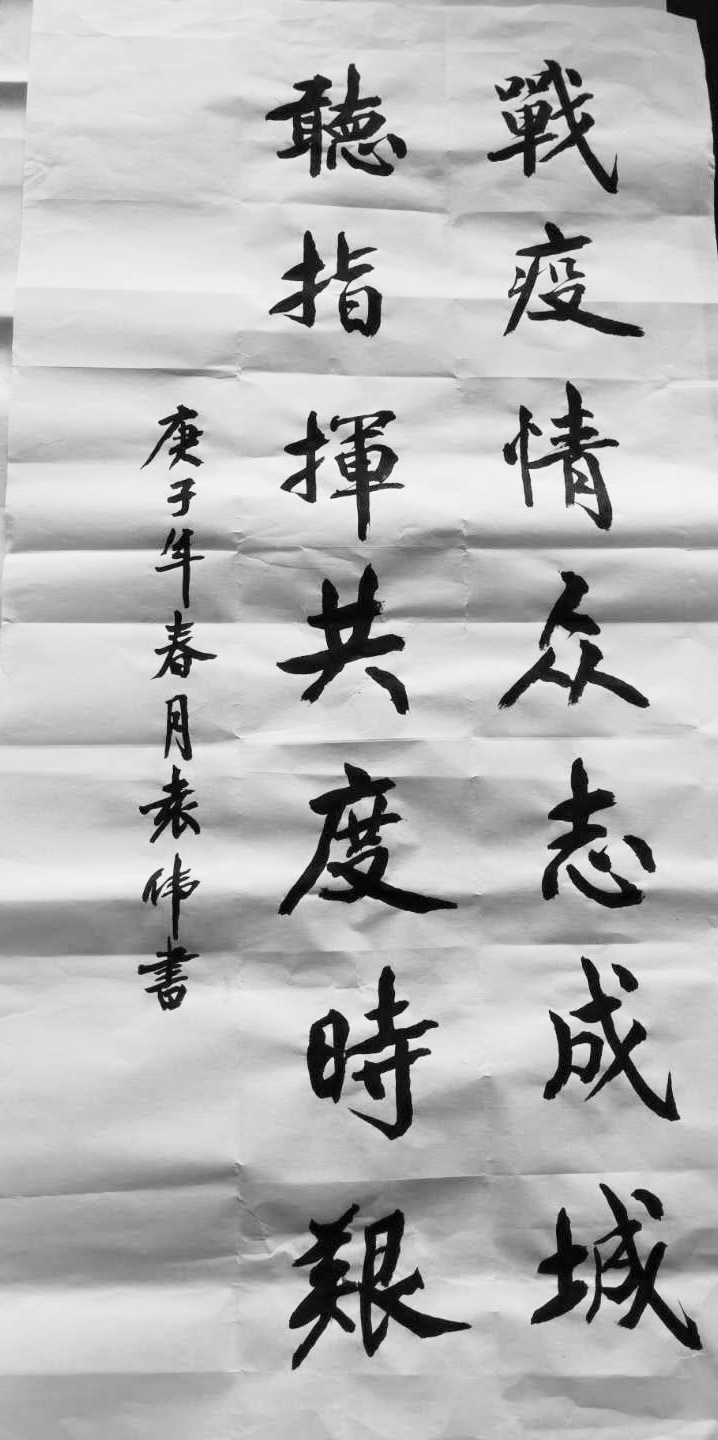 戰疫情众志成城
聽指揮共度時艱
庚子年春月袁伟書